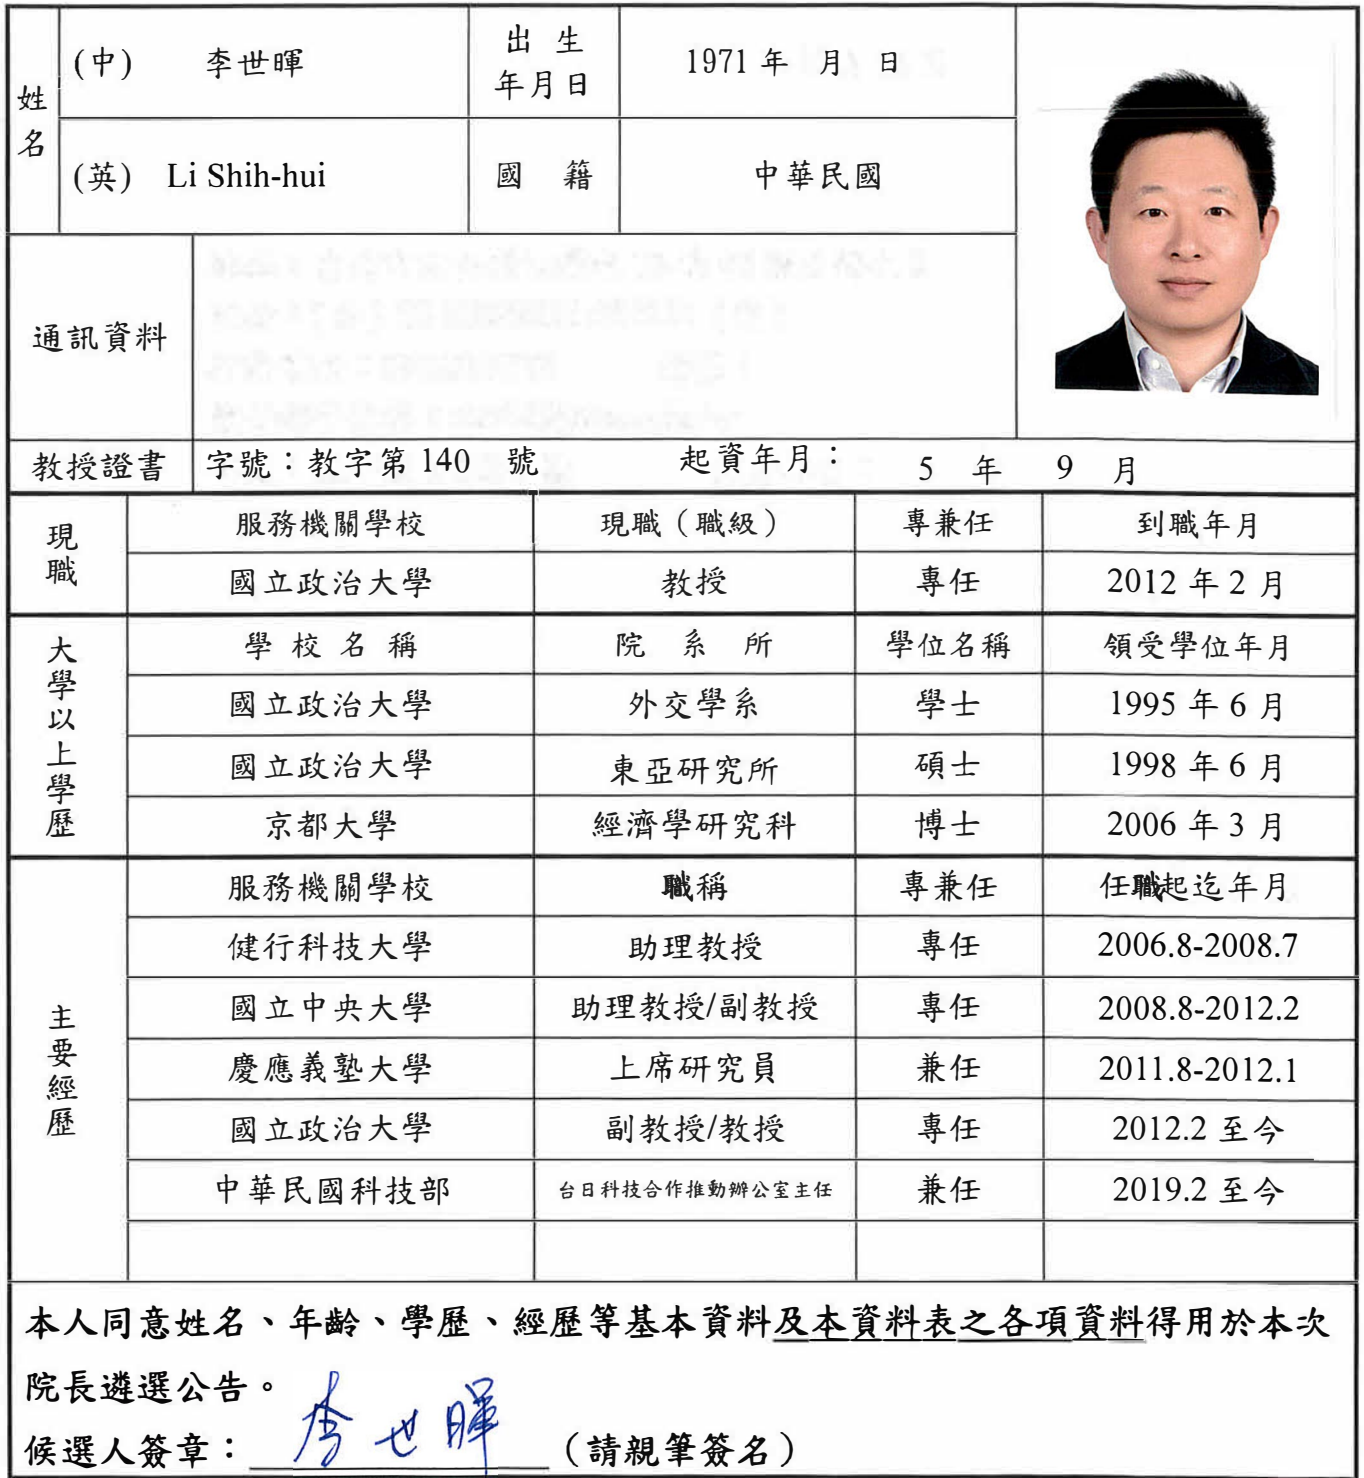 姓名 (中) 李世暉 出生年月日 1971 年 月 日
(英) Li Shih-hui 國籍 中華民國
通訊資料
教授證書 字號：教字第 140 號 起資年月： 5 年 9 月
現職 服務機關學校 現職（職級） 專兼任 到職年月
國立政治大學 教授 專任 2012 年 2 月
大學以上學歷 學校名稱 院系所 學位名稱 領受學位年月
國立政治大學 外交學系 學士 1995 年 6 月
國立政治大學 東亞研究所 碩士 1998 年 6 月
京都大學 經濟學研究科 博士 2006 年 3 月
主要經歷 服務機關學校 職稱 專兼任 任職起迄年月
健行科技大學 助理教授 專任 2006.8-2008.7
國立中央大學 助理教授/副教授 專任 2008.8-2012.2
慶應義塾大學 上席研究員 兼任 2011.8-2012.1
國立政治大學 副教授/教授 專任 2012.2 至今
中華民國科技部 台日科技合作推動辦公室主任 兼任 2019.2 至今
本人同意姓名、年齡、學歷、經歷等基本資料及本資料表之各項資料得用於本次
院長遴選公告。
候選人簽章： 李世暉 （請親筆簽名）